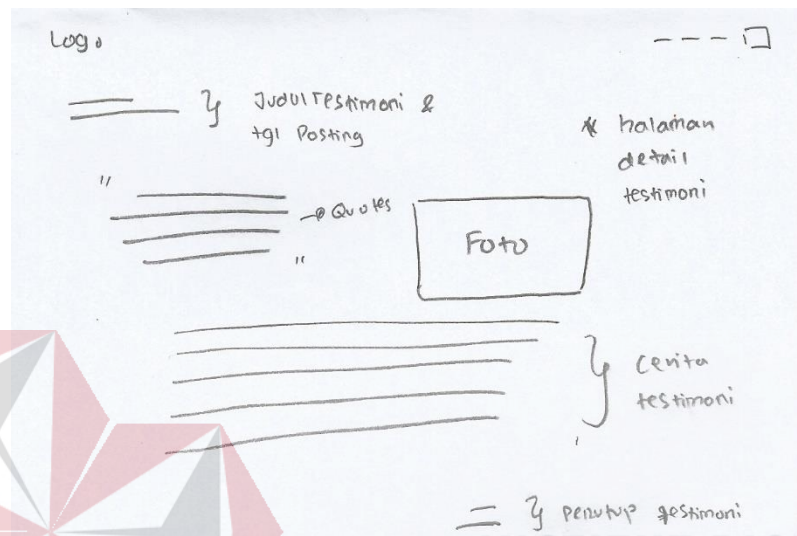 Logo
Judul Testimoni &
tgl Posting
* halaman
detail
testimoni
" Quotes "
Foto
cerita
testimoni
penutup testimoni